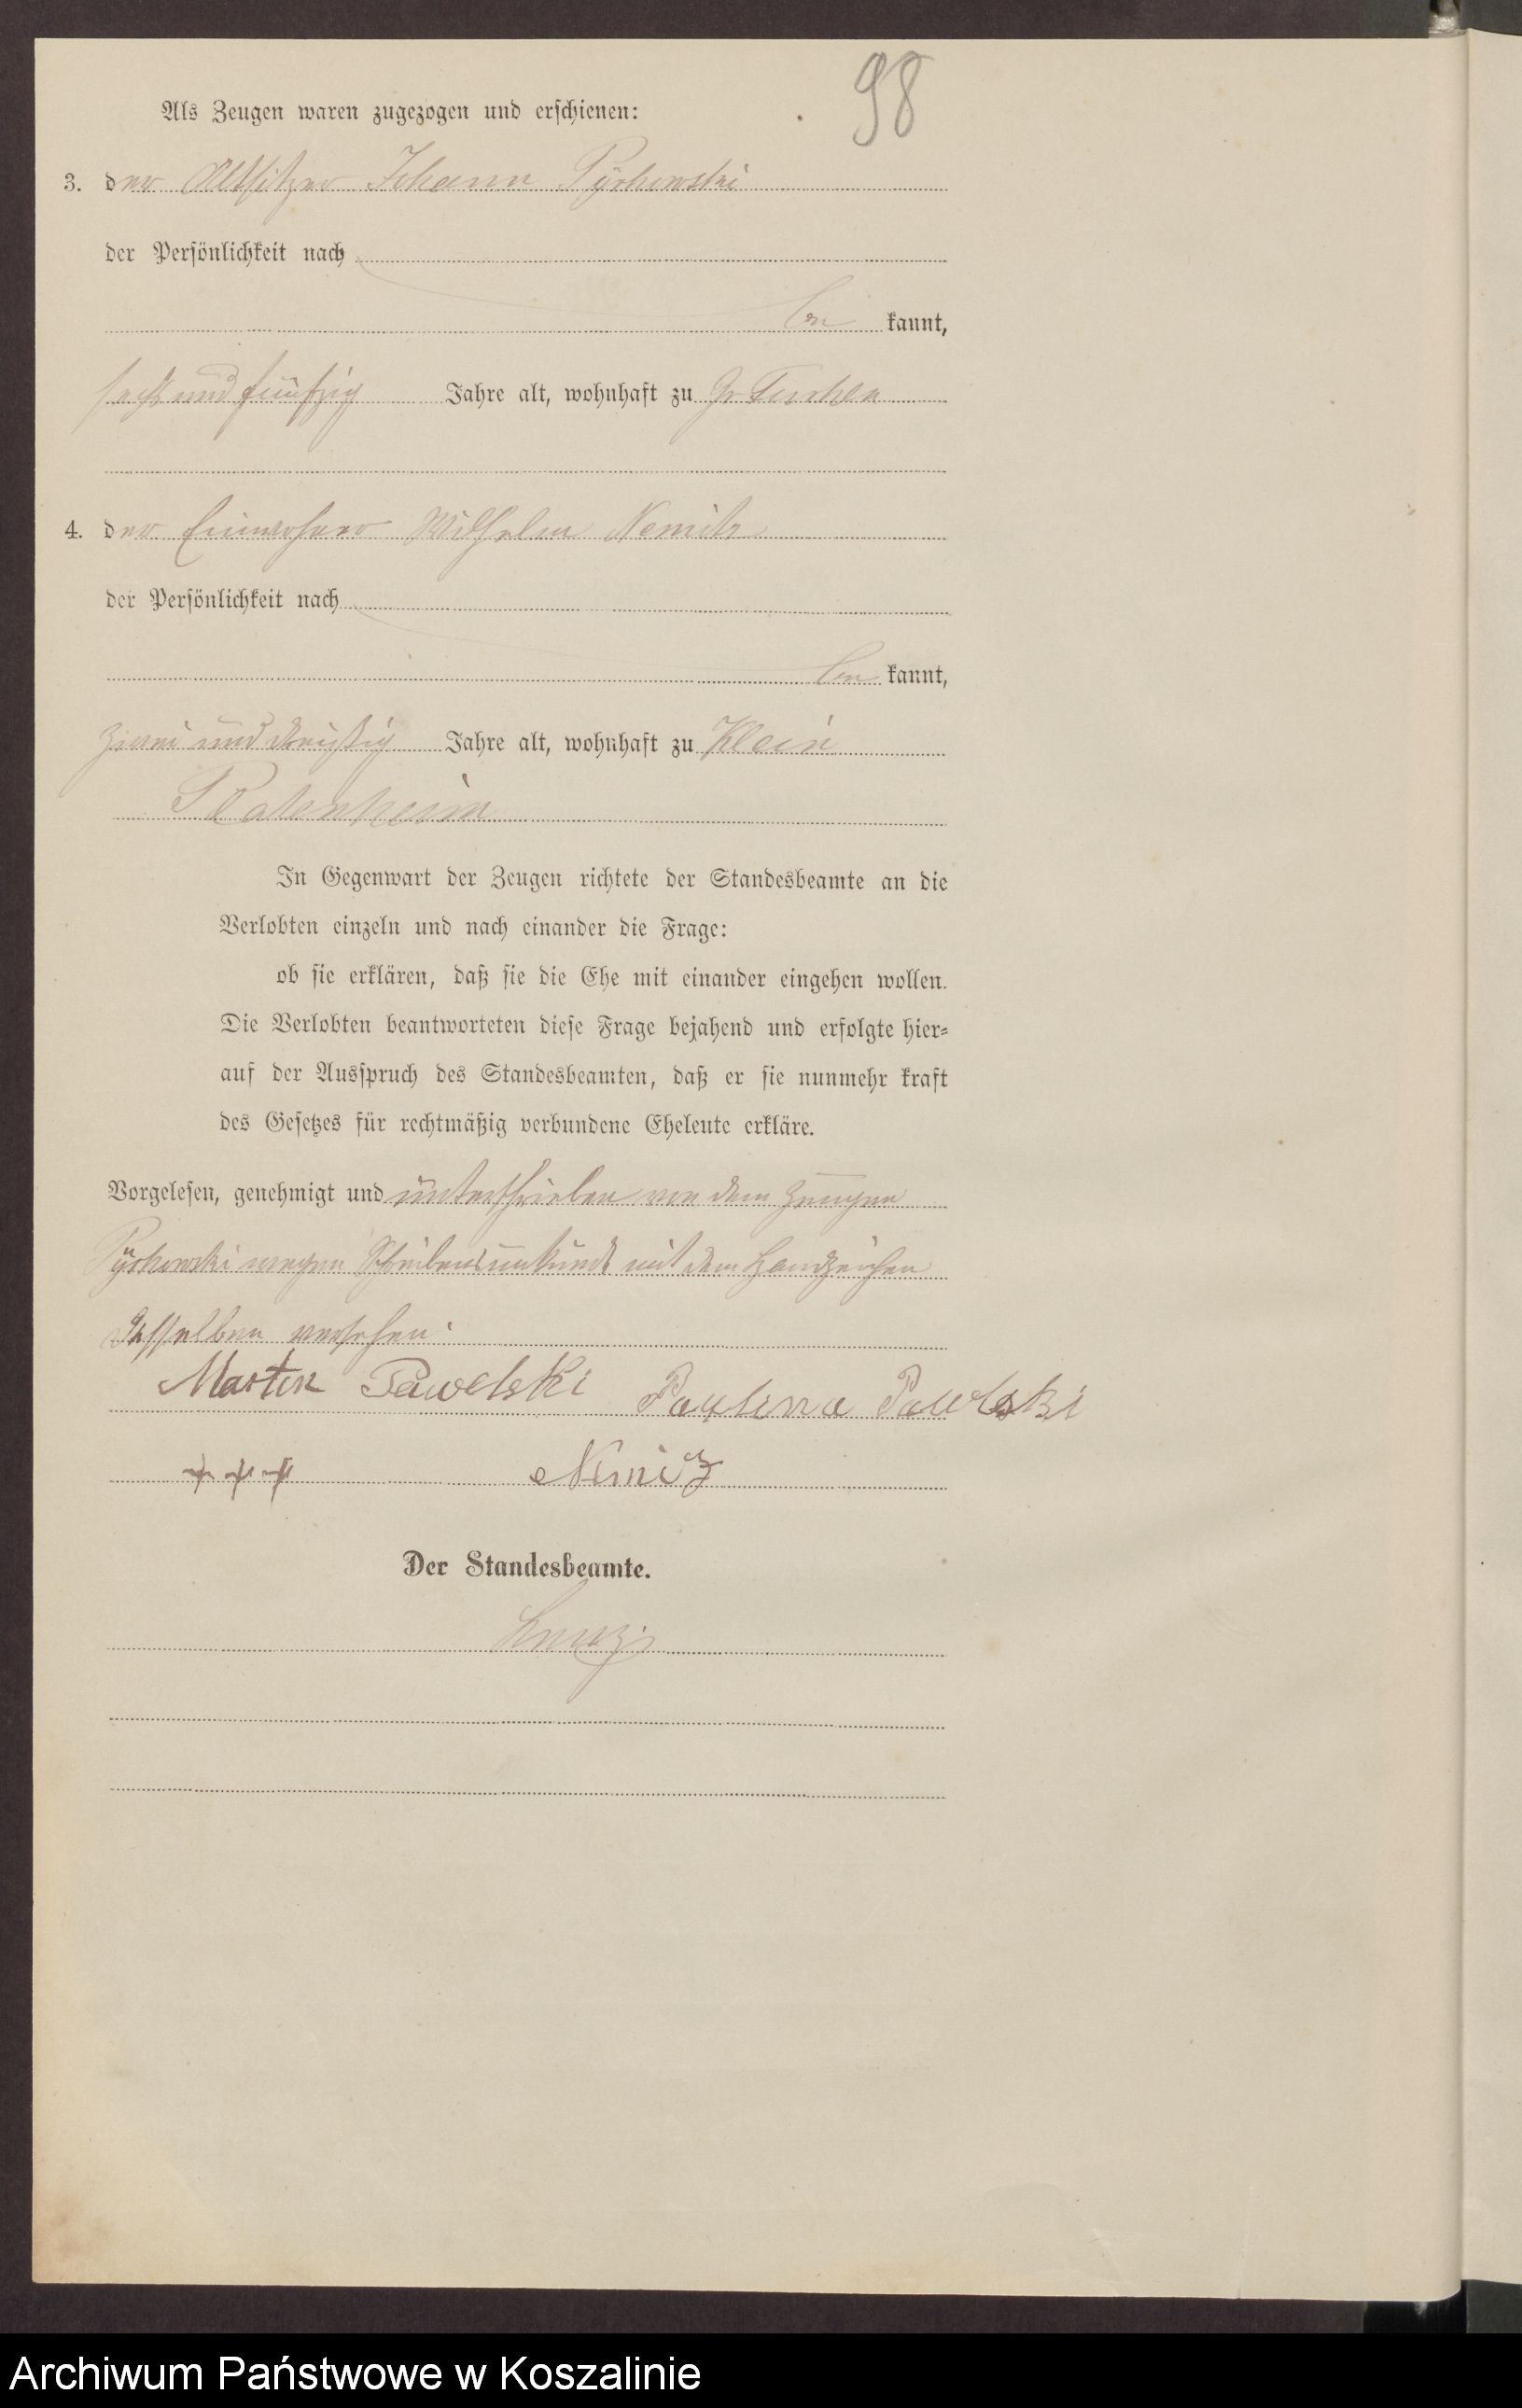 98
Als Zeugen waren zugezogen und erschienen:
3. der Altsitzer Johann Pyrkowski
der Persönlichkeit nach
be kannt,
sechs und fünfzig Jahre alt, wohnhaft zu Gr Tuchen
4. der Einwohner Wilhelm Nemitz
der Persönlichkeit nach
be kannt,
zwei und dreißig Jahre alt, wohnhaft zu Klein
Platenheim
In Gegenwart der Zeugen richtete der Standesbeamte an die
Verlobten einzeln und nach einander die Frage:
ob sie erklären, daß sie die Ehe mit einander eingehen wollen.
Die Verlobten beantworteten diese Frage bejahend und erfolgte hier-
auf der Ausspruch des Standesbeamten, daß er sie nunmehr kraft
des Gesetzes für rechtmäßig verbundene Eheleute erkläre.
Vorgelesen, genehmigt und unterschrieben von dem Zeugen
Pyrkowski wegen Schreibensunkunde mit dem Handzeichen
desselben versehen.
Martin Pawelski Paulina Pawelski
+++ Nemiz
Der Standesbeamte.
Archiwum Państwowe w Koszalinie